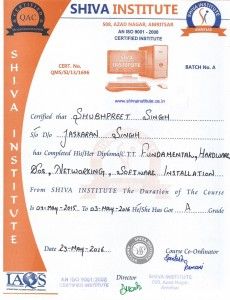 SHIVA INSTITUTE
508, AZAD NAGAR, AMRITSAR
AN ISO 9001 - 2008
CERTIFIED INSTITUTE
CERTIFIED
QAC
CERT. NO.
QMS/SI/13/1696
BATCH No. A
www.shivainstitute.co.in
SHIVA INSTITUTE
Certified that SHUBHPREET SINGH
S/o D/o JASKARAN SINGH
has Completed His/Her Diploma/C.T.T. FUNDAMENTAL, HARDWARE
NETWORKING, SOFTWARE INSTALLATION
From SHIVA INSTITUTE The Duration of The Course
is 03-MAY-2015 To 03-MAY-2016 He/She Has Got A Grade
Date 23-MAY-2016
Course Co-Ordinator
IAQS
AN ISO 9001 - 2008
CERTIFIED INSTITUTE
Director
SHIVA INSTITUTE
Azad Nagar,
Amritsar